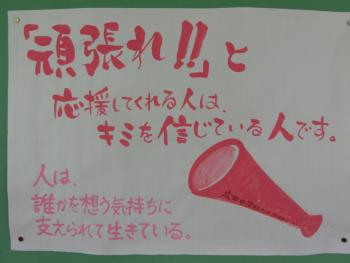 「頑張れ!!」と
応援してくれる人は、
キミを信じている人です。
人は、
誰かを想う気持ちに
支えられて生きている。